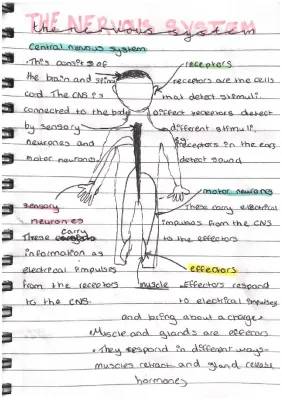 THE NERVOUS SYSTEM
the nervous system
central nervous system
· This consists of
the brain and spinal
cord. The CNS is
connected to the body
by sensory
neurones and
motor neurons.
receptors
receptors are the cells
that detect stimuli.
Different receptors detect
different stimuli,
receptors in the ears
detect sound
motor neurons
These carry electrical
impulses from the CNS
to the effectors
sensory
neurones
These carry
information as
electrical impulses
from the receptors
to the CNS.
effectors
muscle
Effectors respond
to electrical impulses
and bring about a change
· Muscle and glands are effectors
· They respond in different ways-
muscles retract and gland release
hormones